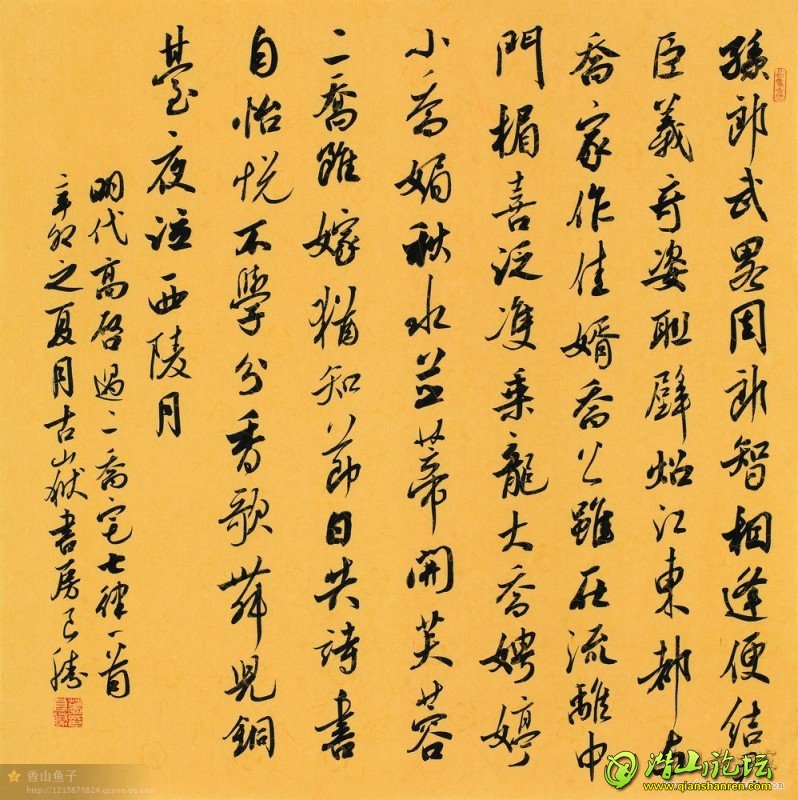 孫郎武畧周郎智相逢便结
臣義奇姿联璧炤江東都与
喬家作佳婿喬公雖在流離中
門楣喜泛雙乘龍大喬娉婷
小喬媚秋水並蒂開芙蓉
二喬雖嫁猶知節日共詩書
自怡悦不學分香歌舞兒銅
臺夜泣西陵月
明代高啓過二喬宅七律一首
辛卯之夏月古山嶽書房
香山鱼子
http://1215870824.qzone.qq.com
潜山论坛
www.qianshanren.com